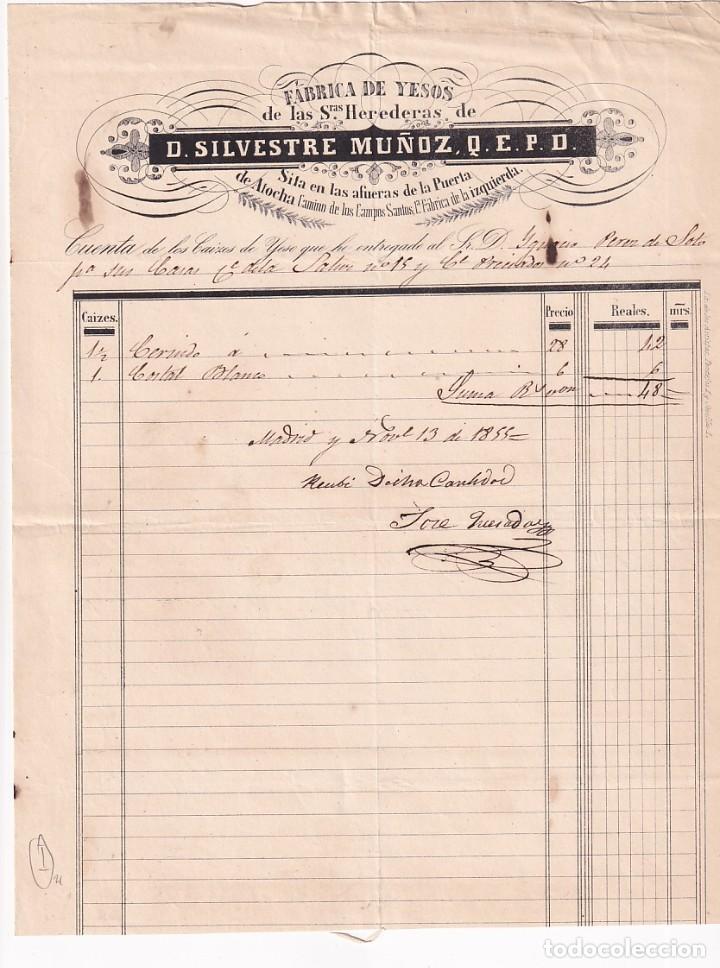 FÁBRICA DE YESOS
de las S.ras Herederas de
D. SILVESTRE MUÑOZ, Q. E. P. D.
Sita en las afueras de la Puerta
de Atocha Camino de los Campos Santos, 1.ª Fábrica de la izquierda.
Cuenta de los Caizes de Yeso que he entregado al Sr. D. Ignacio Perez de Soto
pa sus Casas de la nº 15 y Ce Preciados nº 24
Caizes. Precio Reales. mrs.
1½ Cernido á 28 42
1. Costal Blanco 6 6
Suma Rs von 48
Madrid y Nove 13 de 1855=
Recibi Dicha Cantidad
Jose Quesada
todocoleccion